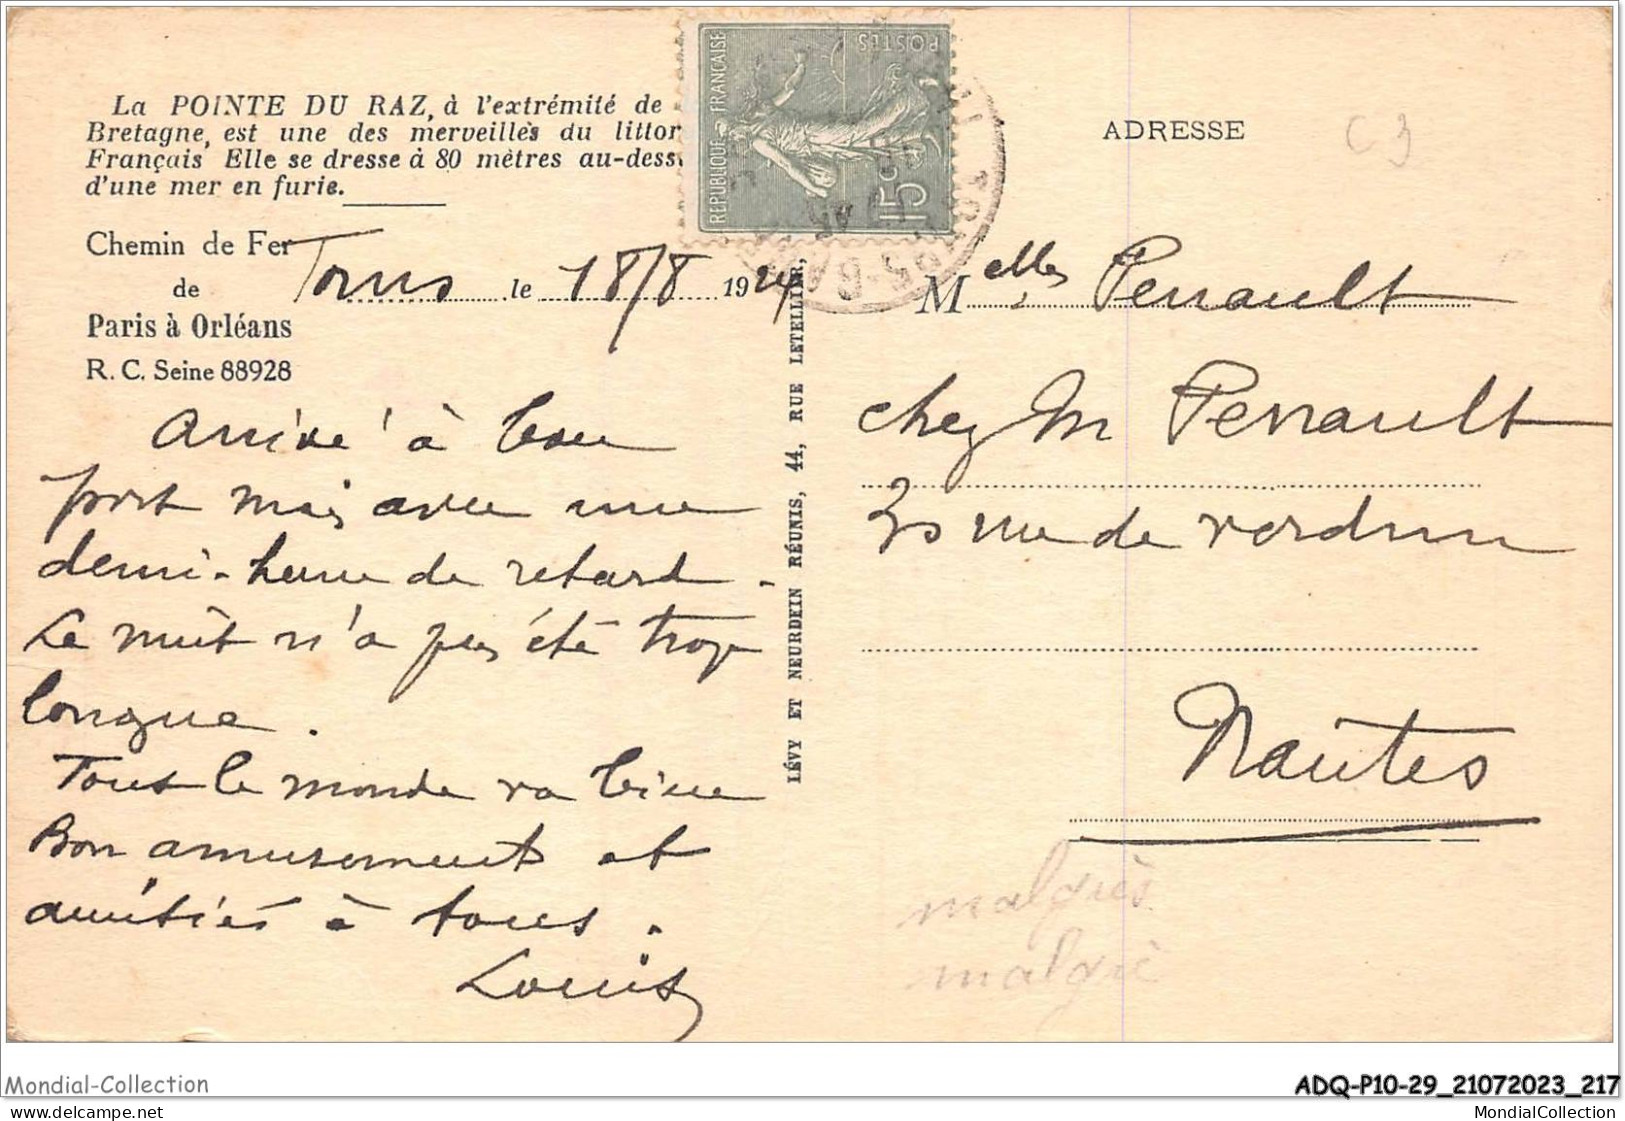 La POINTE DU RAZ, à l'extrémité de
Bretagne, est une des merveilles du littor
Français Elle se dresse à 80 mètres au-dess
d'une mer en furie.
Chemin de Fer
de
Paris à Orléans
R. C. Seine 88928
Tours le 18/8 1924
Arrivé à bon
port mais avec une
demi-heure de retard.
La nuit n'a pas été trop
longue.
Tout le monde va bien
Bon amusement et
amitiés à tous.
Louis
LÉVY ET NEURDEIN RÉUNIS, 44, RUE LETELLIER,
RÉPUBLIQUE FRANÇAISE
POSTES
15c
TOURS-GARE
ADRESSE
C 3
Melles Perrault
chez M Perrault
rue de verdun
Nantes
malgrès
malgré
Mondial-Collection
www.delcampe.net
ADQ-P10-29_21072023_217
MondialCollection